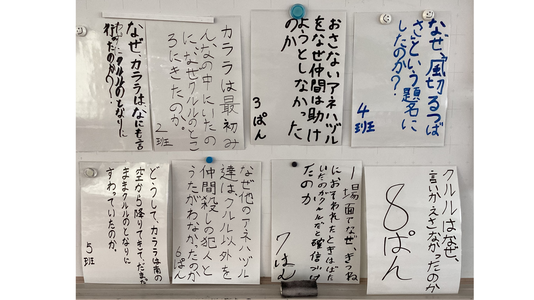 なぜ、風切るつば
さという題名に
したのか?
4班
おさないアネハヅル
をなぜ仲間は助け
ようとしなかった
のか
3ぱん
カララは最初み
んなの中にいたの
に、なぜクルルのとこ
ろにきたのか。
2班
なぜカララは、なにも言
わずにクルルのとなりに
行ったのか。
クルルはなぜ、
言いかえさなかったのか
8ぱん
1場面でなぜ、きつね
におそわれたときはばた
いたのがクルルだと確信づけ
たのか
7はん
なぜ他のアネハヅル
達は、クルル以外を
仲間殺しの犯人と
うたがわなかったのか
6ぱん
どうして、カララは南の
空から降りてきて、だまった
ままクルルのとなりに
すわっていたのか。
5班